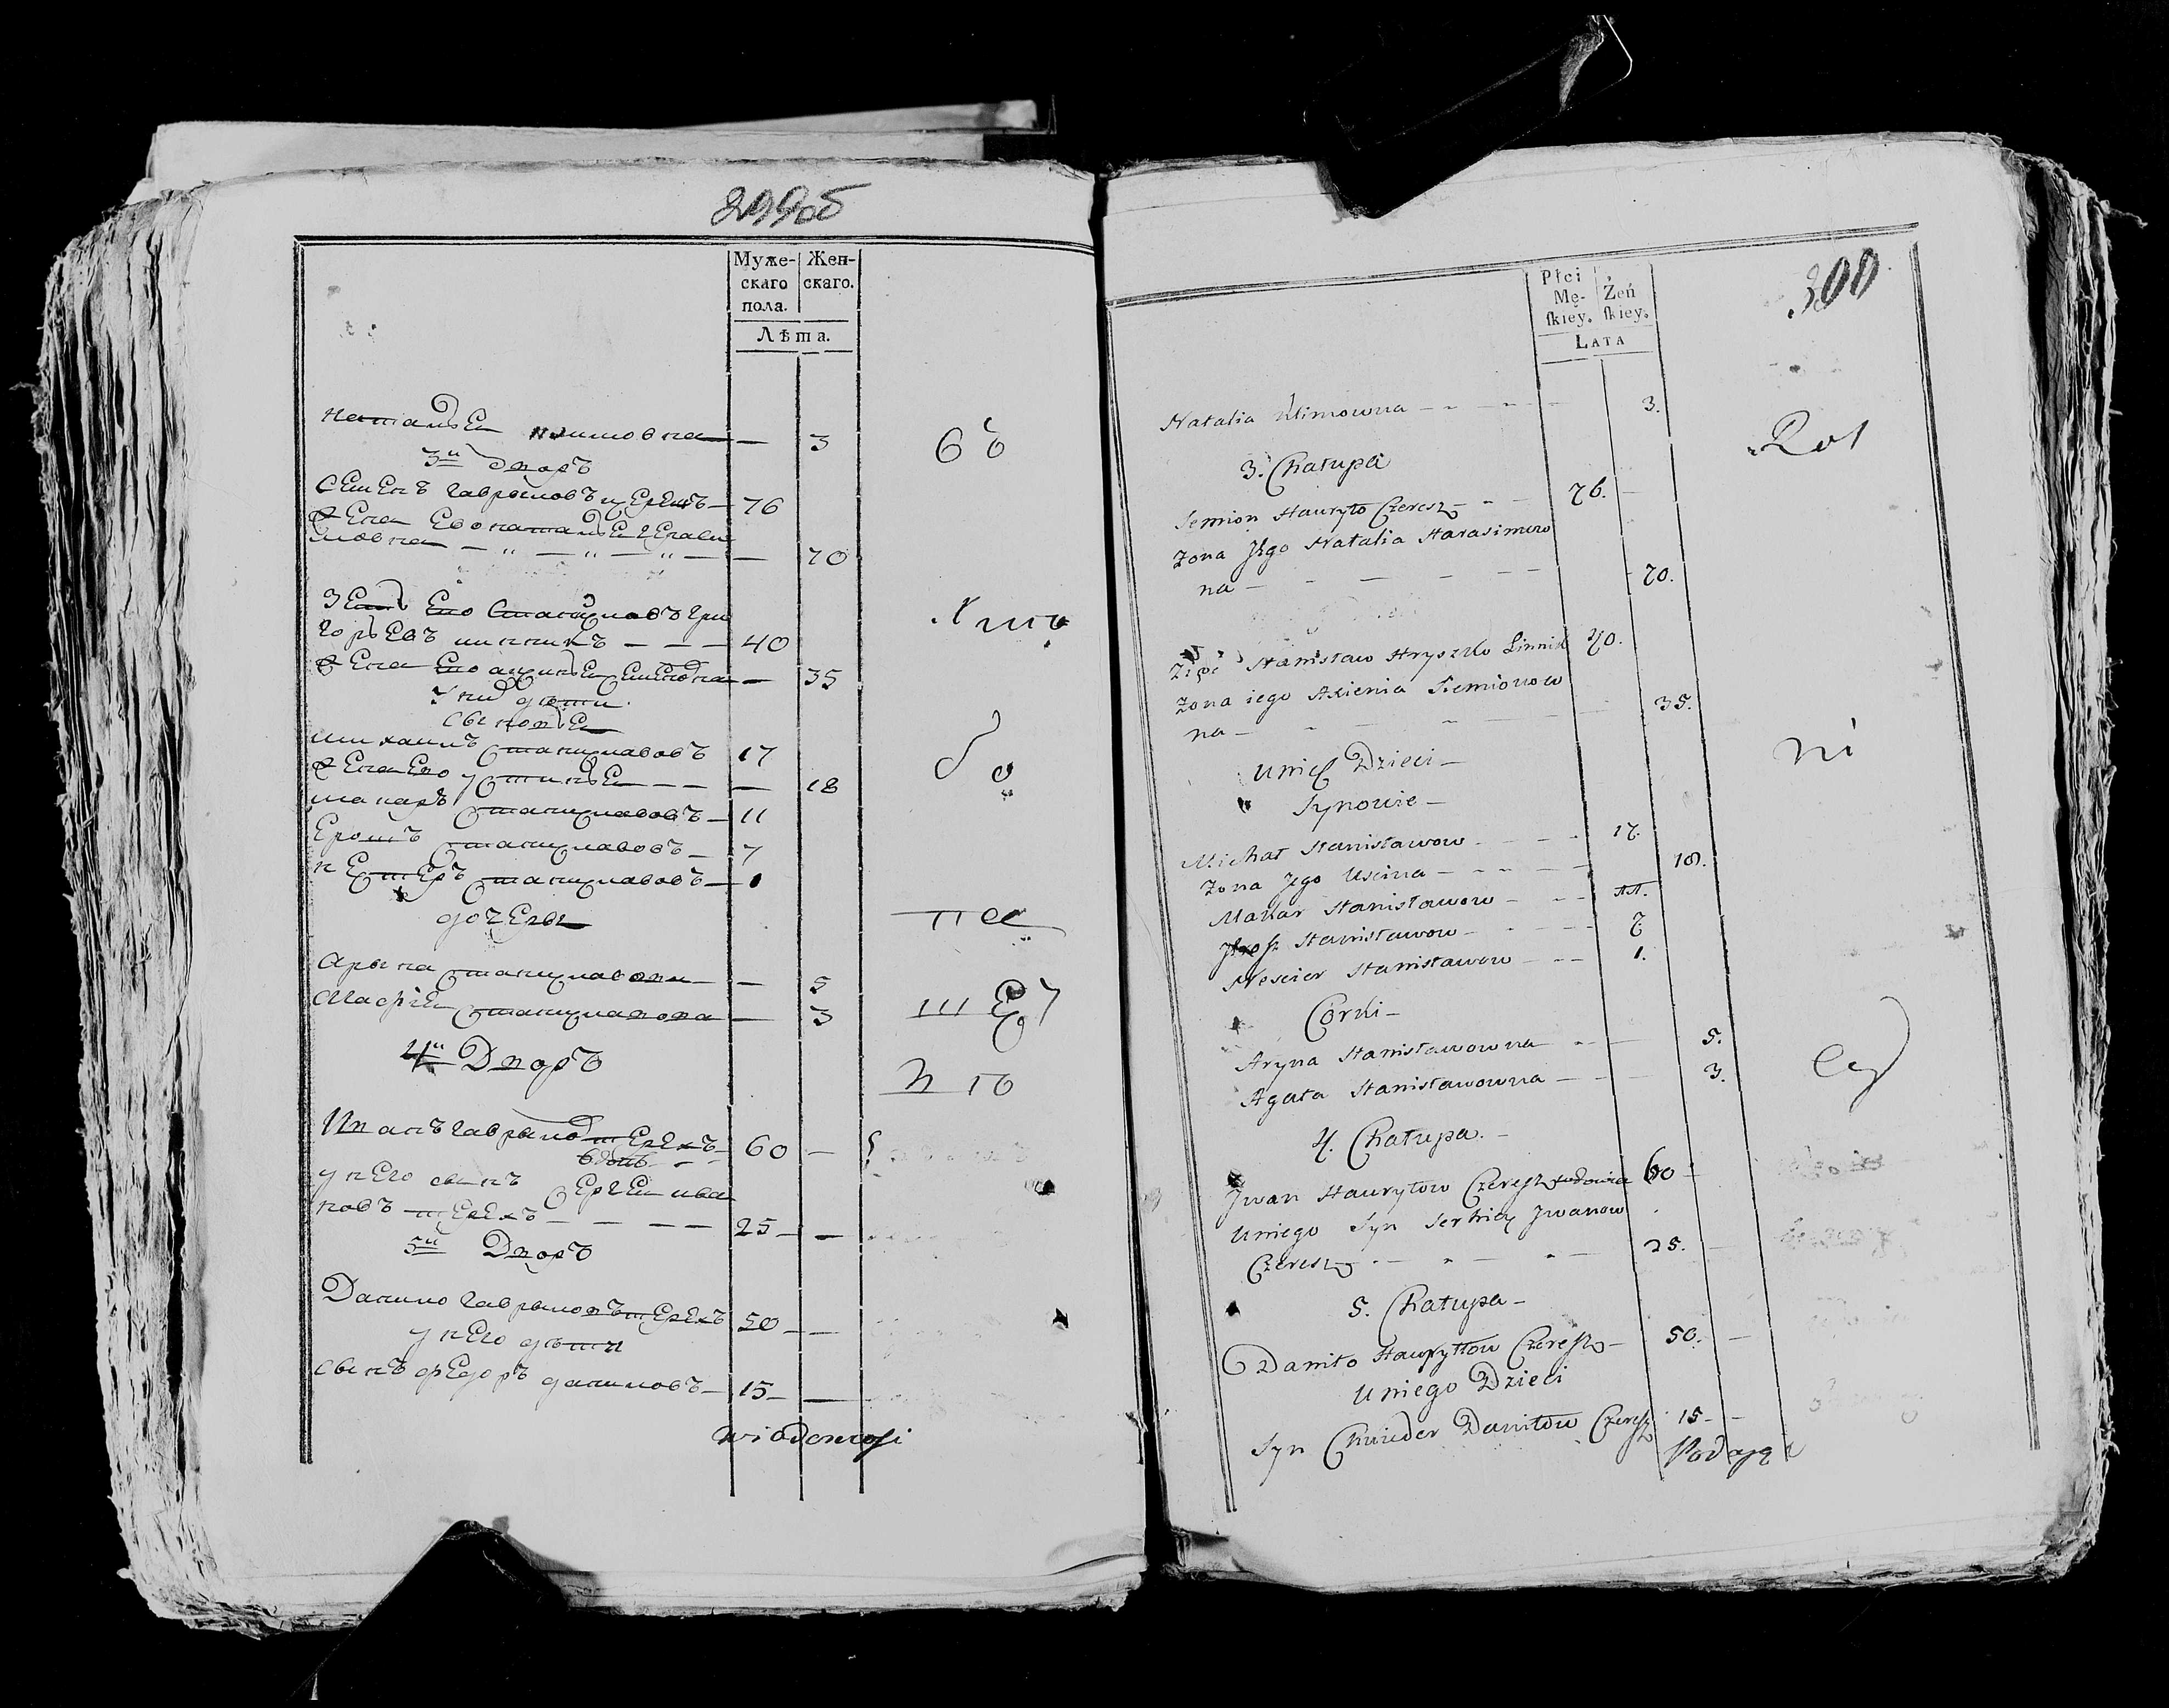 299об
Муже-
скаго
пола.
Жен-
скаго.
Лѣта.
наталья климовна — 3
3й дворъ
Семенъ гавриловъ черешъ — 76
жена Ево наталья герасы
мовна — — — — 70
Зеть Ево Станиславъ гри
горьевъ линникъ — — — 40
жена Ево аксинья семеновна — 35
У них дети
сыновья
михаилъ станиславовъ 17
жена Ево устинья — — — 18
макаръ станиславовъ — 11
станиславовъ — 7
нестеръ станиславовъ — 1
дочеры
арына станиславовна — 5
станиславовна — 3
4й Дворъ
Иванъ гаврилов черехъ 60 —
вдовъ — —
у него сынъ Сергей ива
новъ черехъ — — — — 25 — —
5й Дворъ
Данило гавриловъ черехъ 50 — —
у него дети
сынъ федоръ даниловъ — 15 — —
wiadomosi
300
Płci
Mę-
ſkiey.
Żeń
ſkiey.
LATA
Natalia Klimowna — — 3.
3. Chałupa
Semion Hauryło Czeresz — — 76. —
Zona Jego Natalia Harasimow
na — — — — — 70.
Zięć Stanisław Hryszko Linnik 40.
Zona iego Axienia Siemionow
na — — — 35.
Unich Dzieci —
Synowie —
Michał Stanisławow — — — 17.
Zona Jego Uscina — — — 18.
Makar Stanisławow — — — 11.
Stanisławow — — — 7
Nescier Stanisławow — — 1.
Corki —
Aryna Stanisławowna — — 5.
Agata Stanisławowna — — 3.
4. Chałupa. —
Jwan Hauryłow Czeresz wdowiec 60 —
Uniego Syn Serhiey Jwanow
Czeresz — — — — 25. —
5. Chałupa —
Daniło Hauryłow Czeresz — 50. —
Uniego Dzieci
Syn Chwieder Daniłow Czeresz 15 —
Podaję